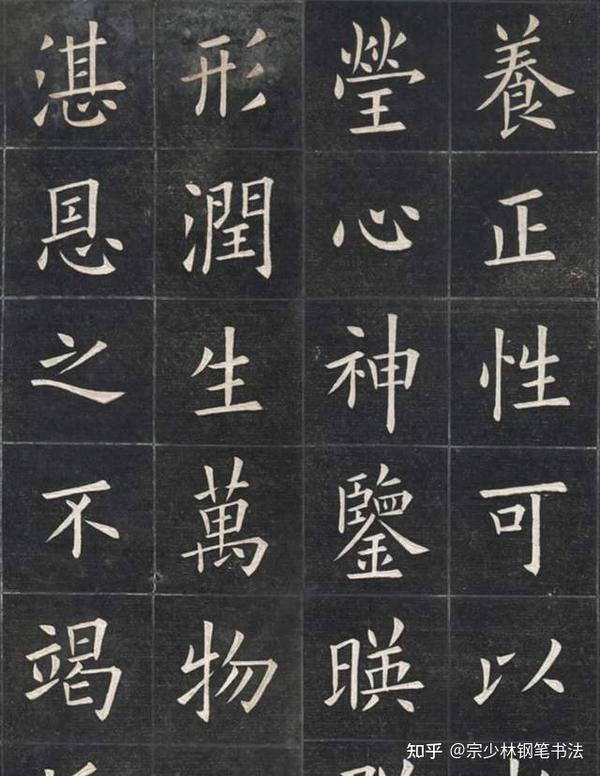 養正性可以
瑩心神鑒暎
形潤生萬物
湛恩之不竭
知乎 @宗少林钢笔书法